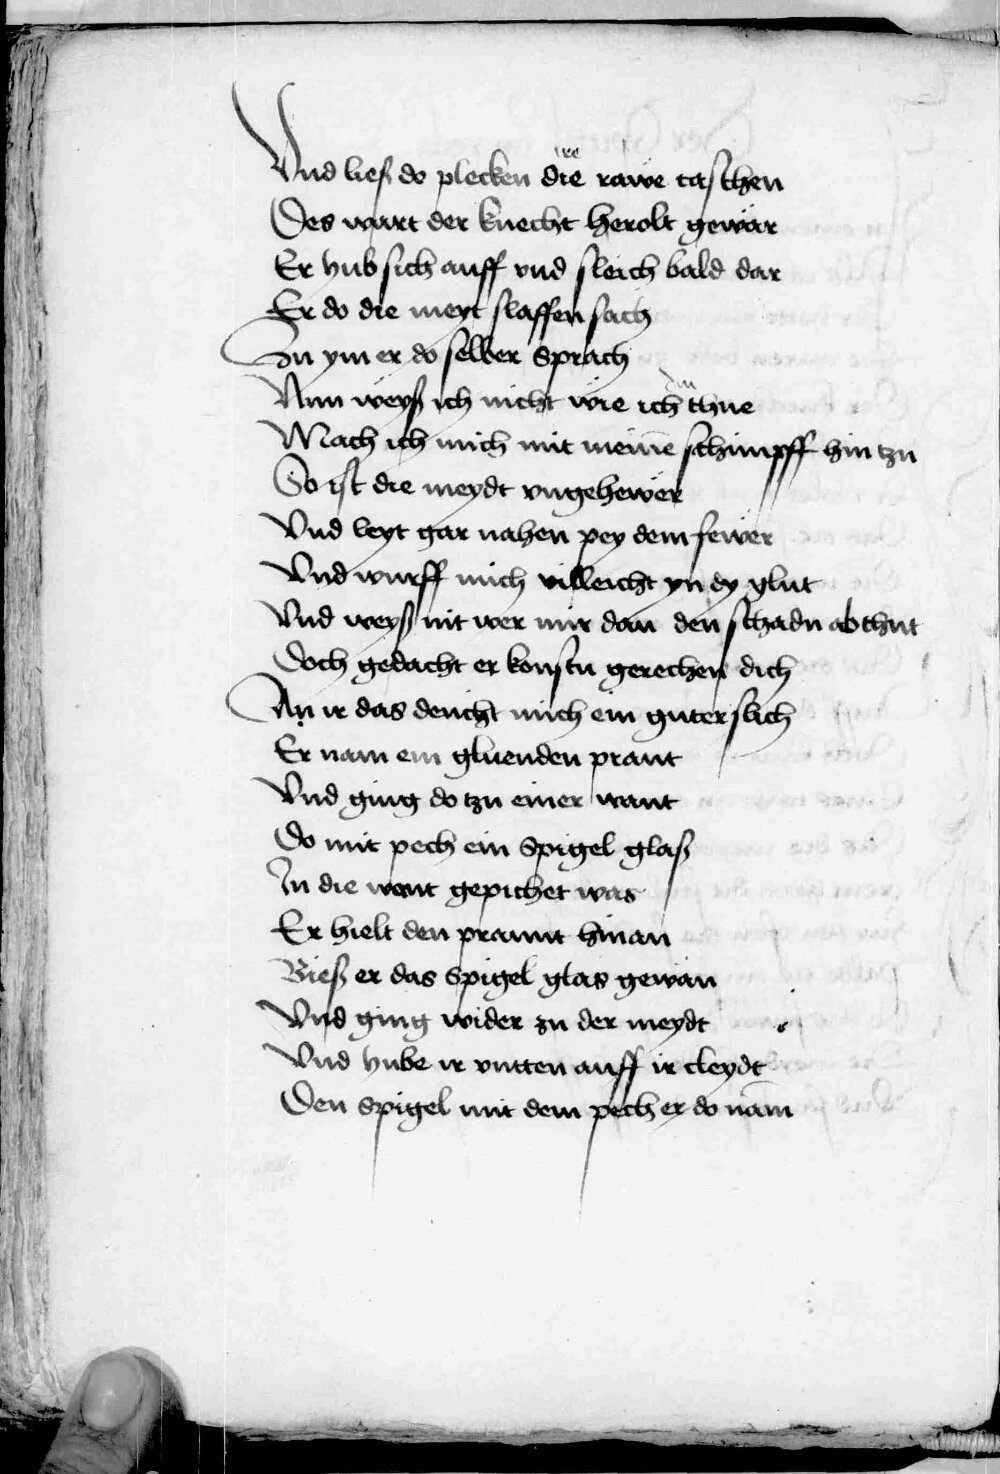 Vnd ließ do plecken die rawe taschen
Des wart der knecht herolt gewar
Er hub sich auff vnd sleich bald dar
Er do die meyt slaffen sach
Zu ym er do selber sprach
Nun weyß ich nicht wie ich im thue
Mach ich mich mit meinē schimpff hin tzu
So ist die meydt vngehewer
Vnd leyt gar nahen pey dem fewer
Vnd wurff mich villeicht yn dy glut
Vnd weyß nit wer mir dan den schadn ab thut
Doch gedacht er konstu gerechen dich
An ir das deucht mich ein guter slich
Er nam ein gluenden prant
Vnd ging do tzu einer want
Do mit pech ein spigel glaß
In die want gepichet was
Er hielt den prannt hinan
Bieß er das spigel glas gewan
Vnd ging wider zu der meydt
Vnd hube ir vntten auff ir cleydt
Den spigel mit dem pech er do nam